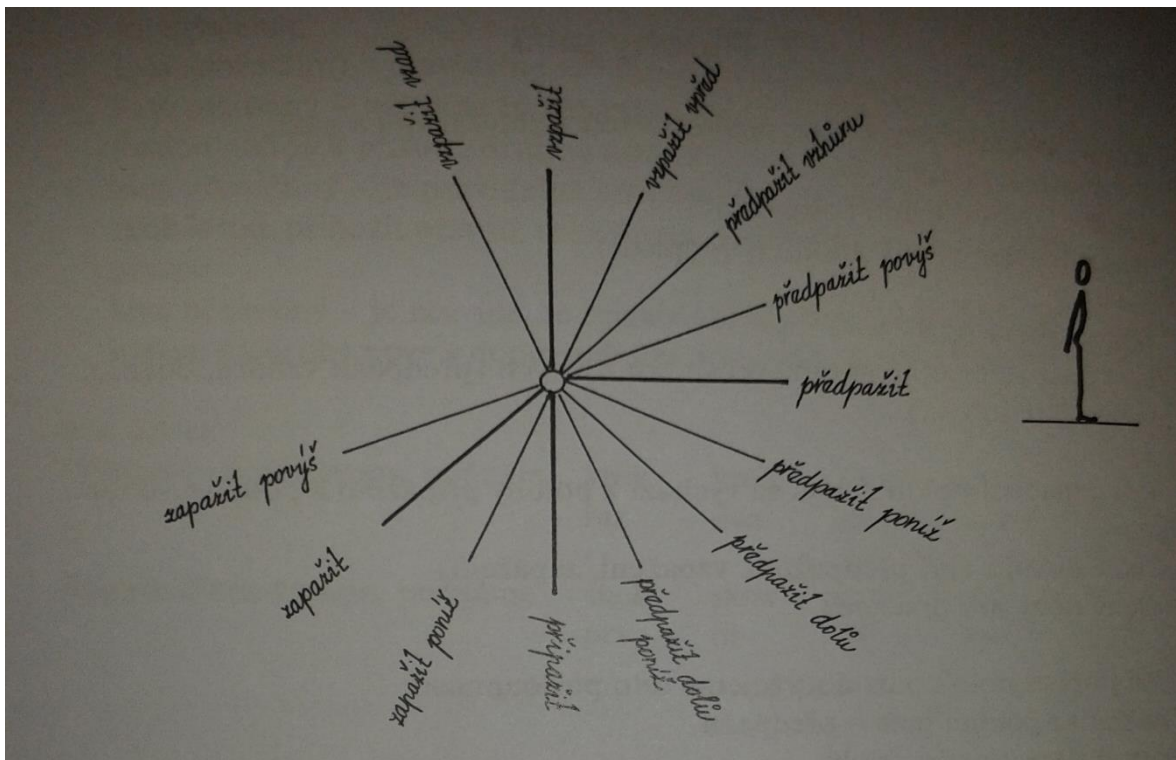 vzpažit vzad
vzpažit
vzpažit vpřed
předpažit vzhůru
předpažit povýš
předpažit
předpažit poníž
předpažit dolů
předpažit dolů
poníž
připažit
zapažit poníž
zapažit
zapažit povýš